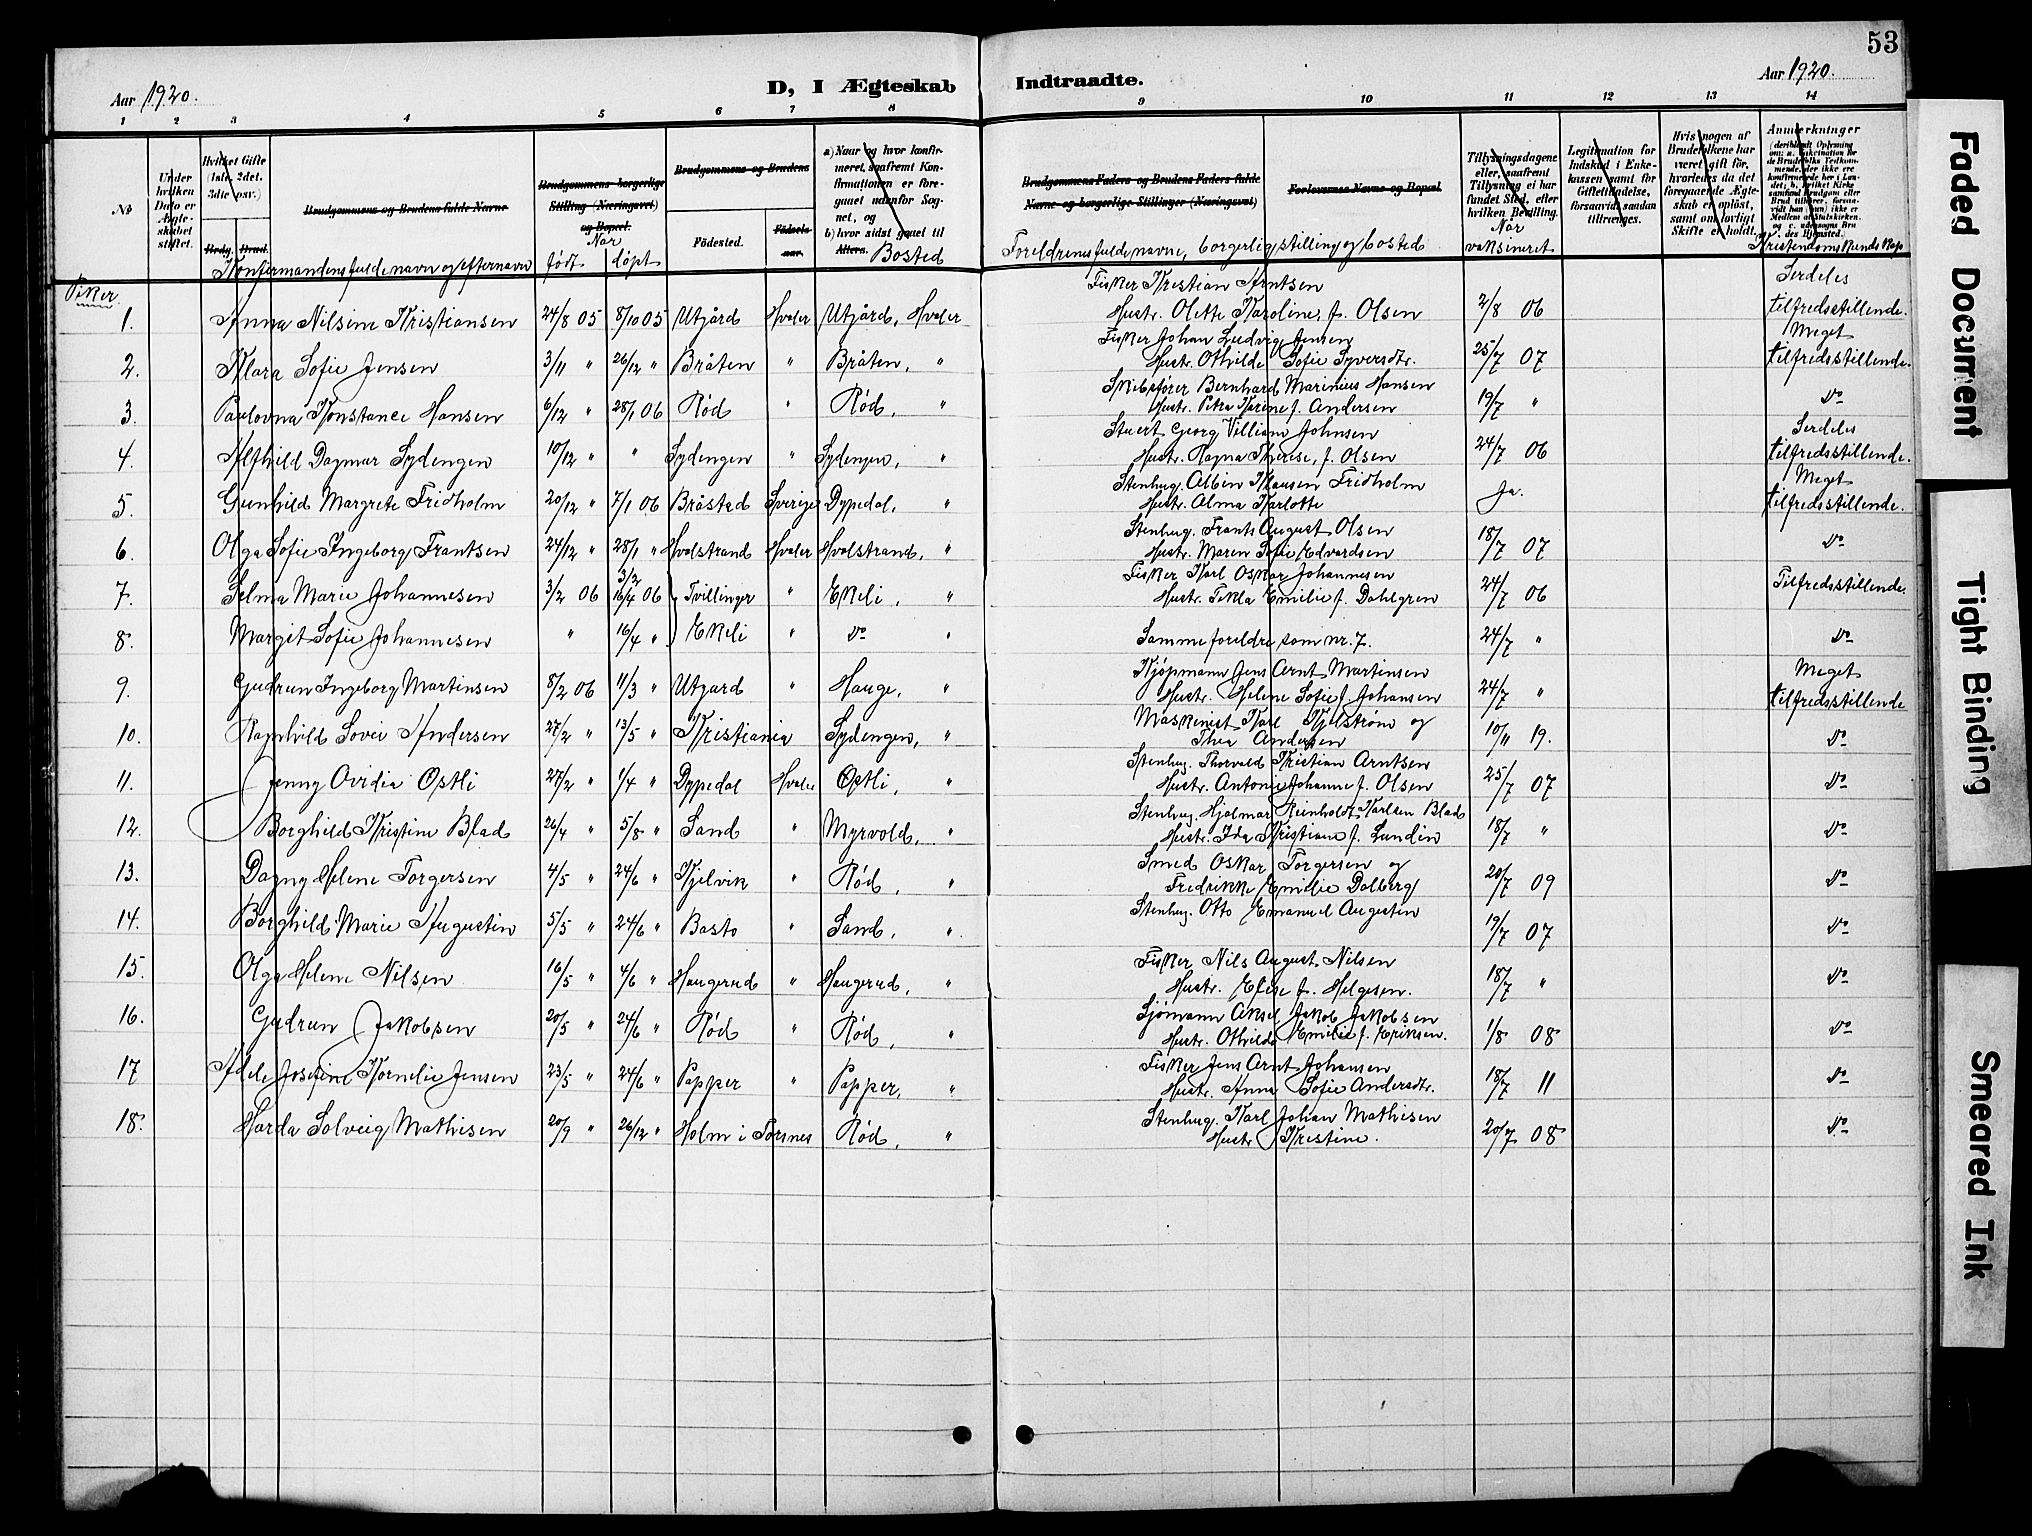 53
Aar 1920.
D, I Ægteskab Indtraadte.
Aar 1920.
1 2 3 4 5 6 7 8 9 10 11 12 13 14
No
Under hvilken Dato er Ægteskabet stiftet.
Hvilket Gifte (1ste, 2det, 3die osv.)
Brdg. Brud.
Brudgommens og Brudens fulde Navne
Konfirmandens fulde navn og efternavn
Brudgommens borgerlige Stilling (Næringsvei) og Bopæl.
Når
født døpt
Brudgommens og Brudens
Födested. Födselsaar.
a) Naar og hvor konfirmeret, saafremt Konfirmationen er foregaaet udenfor Sognet, og
b) hvor sidst gaaet til Alters.
Bosted
Brudgommens Faders og Brudens Faders fulde Navne og borgerlige Stillinger (Næringsvei)
Forlovernes Navne og Bopæl.
Foreldrenes fulde navne, borgerlig stilling og bosted
Tillysningsdagene eller, saafremt Tillysning ei har fundet Sted, efter hvilken Bevilling.
Når vaksineret
Legitimation for Indskud i Enkekassen samt for Giftetilladelse, forsaavidt saadan tiltrænges.
Hvis nogen af Brudefolkene har været gift før, hvorledes da det foregaaende Ægteskab er opløst, samt om lovligt Skifte er holdt.
Anmærkninger
Kristendomskundskap
Piker.
1. Anna Nilsine Kristiansen 24/8 05 8/10 05 Utgård Hvaler Utgård, Hvaler Fisker Kristian Arntsen Hustr. Olette Karoline, f. Olsen 2/8 06 Serdeles tilfredsstillende.
2. Klara Sofie Jensen 3/11 " 26/12 " Bråten " Bråten, " Fisker Johan Ludvig Jensen Hustr. Othilde Sofie Syversdtr. 25/7 07 Meget tilfredsstillende.
3. Paulovna Konstance Hansen 6/12 " 28/1 06 Rød " Rød, " Skibsfører Bernhard Marinius Hansen Hustr. Petra Karine f. Andersen 19/7 " Do
4. Alfhild Dagmar Sydengen 10/12 " " Sydengen " Sydengen, " Stuert Georg Villiam Johnsen Hustr. Ragna Therese, f. Olsen 24/7 06 Serdeles tilfredsstillende.
5. Gunhild Margrete Fridholm 20/12 " 7/1 06 Bråstad Sverige Dypedal, " Stenhug. Albin Klausen Fridholm Hustr. Alma Karlotte Ja. Meget tilfredsstillende.
6. Olga Sofie Ingeborg Frantsen 24/12 " 28/1 " Hvalstrand Hvaler Hvalstrand, " Stenhug. Frants August Olsen Hustr. Maren Sofie Edvardsen 18/7 07 Do
7. Selma Marie Johannesen 3/2 06 3/2 16/4 06 Tvillinger " Ekeli, " Fisker Karl Oskar Johannesen Hustr. Tekla Emilie f. Dahlgren 24/7 06 Tilfredsstillende.
8. Margit Sofie Johannesen " 16/4 " Ekeli " Do " Samme foreldre som nr. 7. 24/7 " Do
9. Gudrun Ingeborg Martinsen 8/2 06 11/3 " Utgård " Hauge, " Kjøpmann Jens Arnt Martinsen Hustr. Helene Sofie f. Johansen 24/7 " Meget tilfredsstillende
10. Ragnhild Lovei Andersen 27/2 " 13/5 " Kristiania Sydengen, " Maskinist Karl Kjelstrøm og Thea Andersen 10/11 19. Do
11. Jenny Ovidia Østli 27/2 " 1/4 " Dypedal Hvaler Østli, " Stenhug. Thorvald Kristian Arntsen Hustr. Antonie Johanne f. Olsen 25/7 07 Do
12. Borghild Kristine Blad 26/4 " 5/8 " Sand " Myrvold, " Stenhug. Hjalmar Reinholdt Karlsen Blad Hustr. Ida Kristiane f. Lundin 18/7 " Do
13. Dagny Helene Torgersen 4/5 " 24/6 " Kjelvik " Rød, " Smed Oskar Torgersen og Fredrikke Emilie Dalberg 20/7 09 Do
14. Borghild Marie Augustin 5/5 " 24/6 " Basto " Sand, " Stenhug. Otto Emanuel Augusten 19/7 07 Do
15. Olga Helene Nilsen 16/5 " 4/6 " Haugerud " Haugerud, " Fisker Nils August Nilsen Hustr. Elise f. Helgesen. 18/7 " Do
16. Gudrun Jakobsen 20/5 " 24/6 " Rød " Rød, " Sjømann Aksel Jakob Jakobsen Hustr. Othilde Emilie f. Eriksen. 1/8 08 Do
17 Adele Josefine Kornelie Jensen 23/5 " 24/6 " Papper " Papper, " Fisker Jens Arnt Johansen Hustr. Anna Sofie Andersdtr. 18/7 11 Do
18. Harda Solveig Mathisen 20/9 " 26/12 " Holm i Torsnes Rød, " Stenhug. Karl Johan Mathisen Hustr. Kristine. 20/7 08 Do
Faded Document
Tight Binding
Smeared Ink